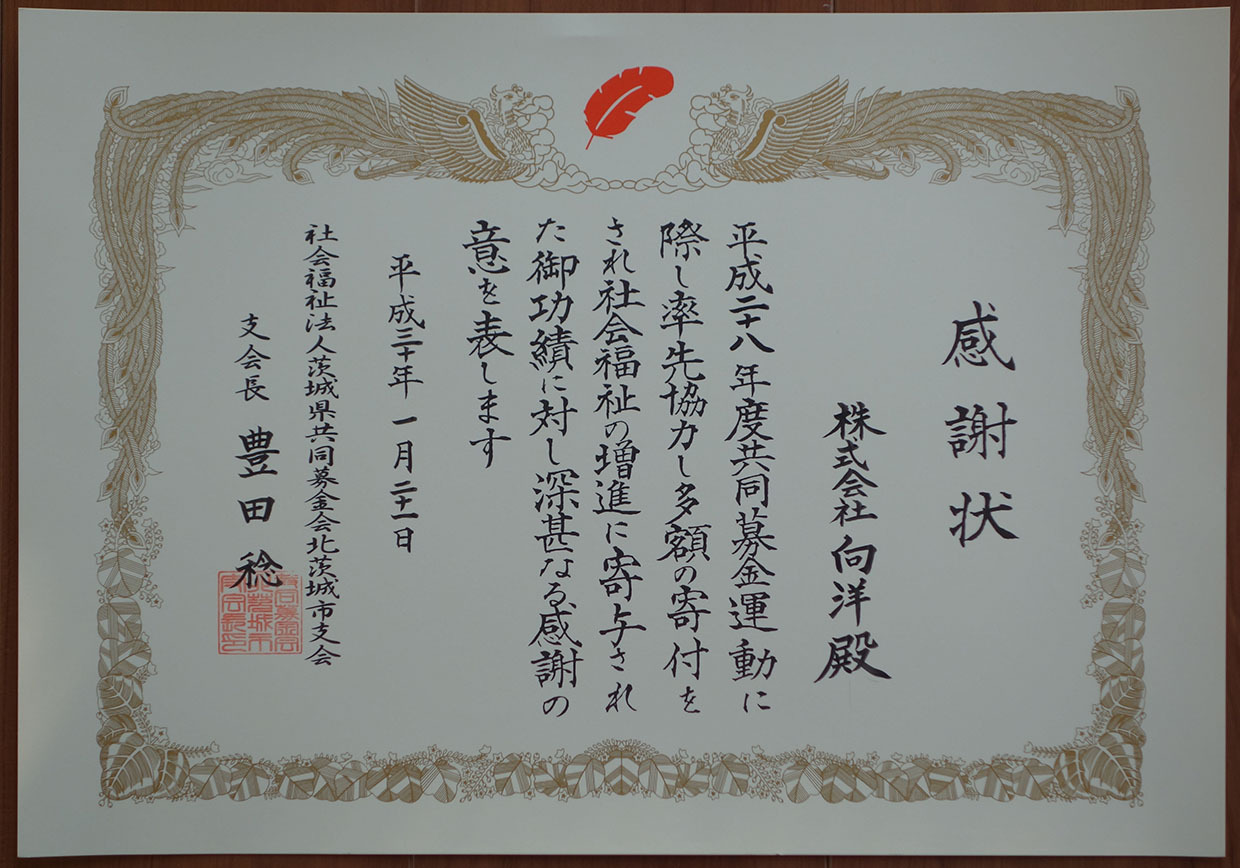 感謝状
株式会社向洋殿
平成二十八年度共同募金運動に
際し率先協力し多額の寄付を
され社会福祉の増進に寄与され
た御功績に対し深甚なる感謝の
意を表します
平成三十年一月二十一日
社会福祉法人茨城県共同募金会北茨城市支会
支会長 豊田稔